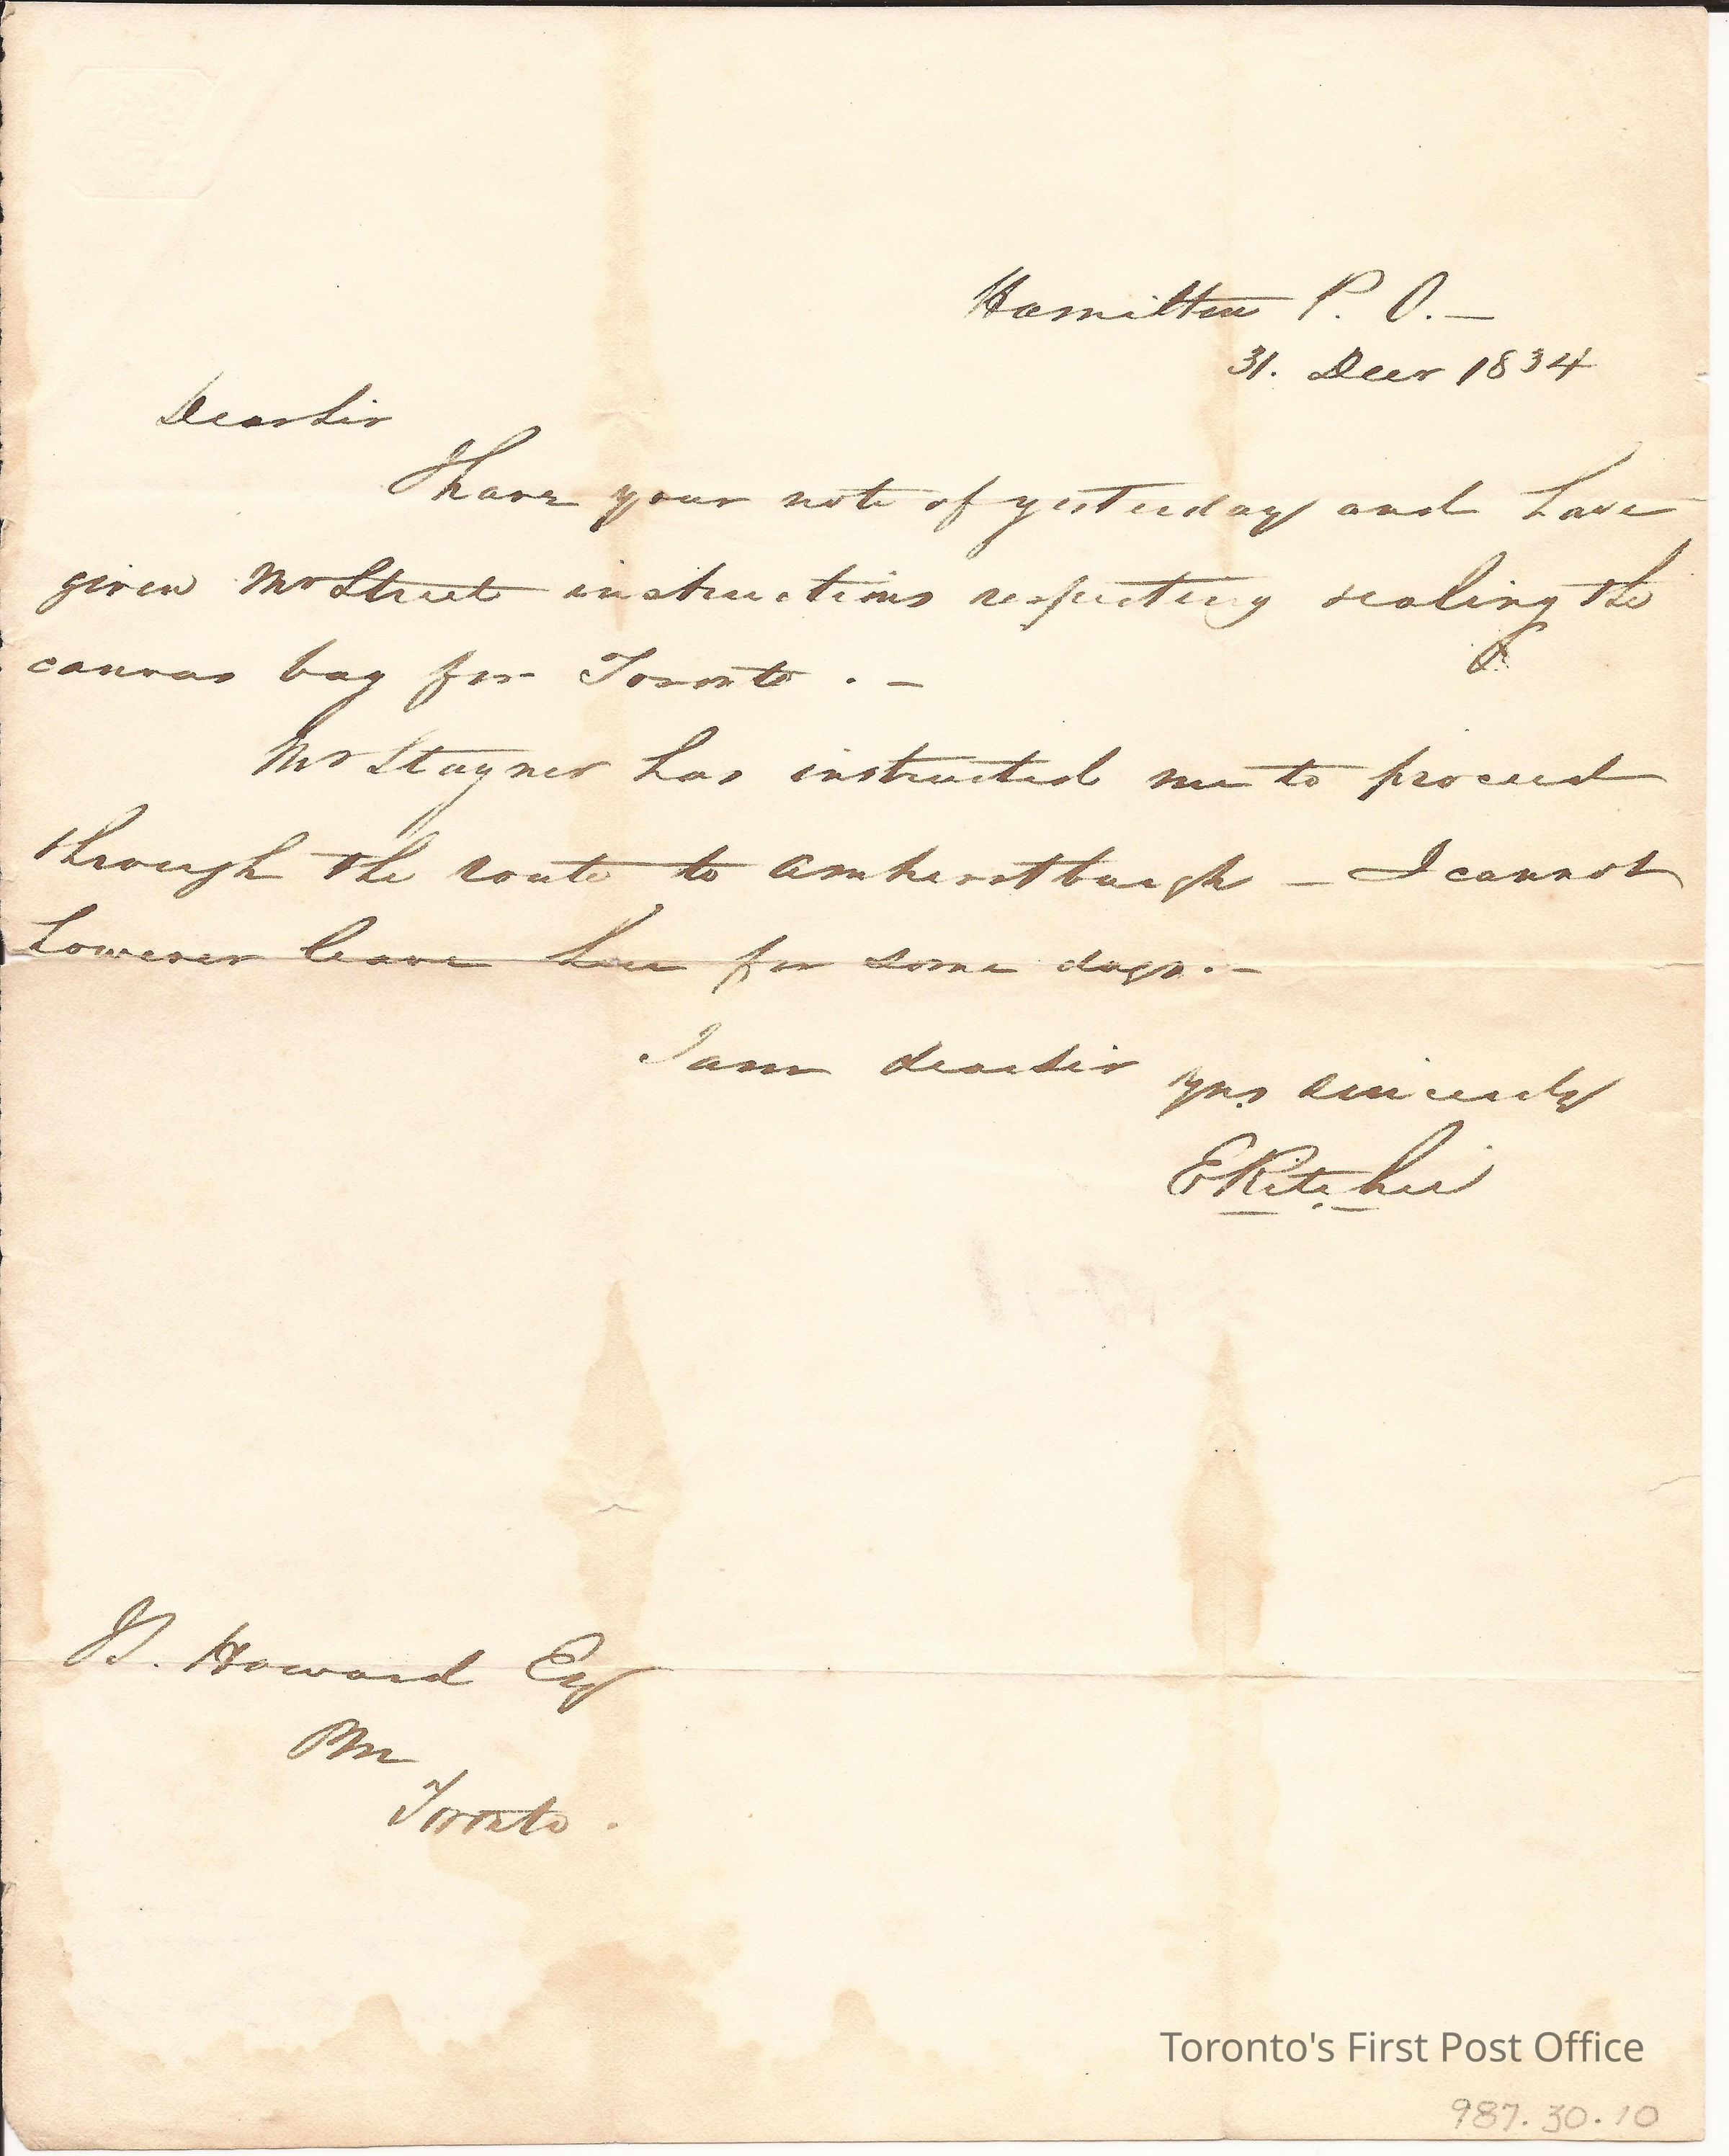 Hamilton P. O. —
31. Decr 1834
Dear Sir
I have your note of yesterday and have
given Mr Street instructions respecting sealing the
canvas bag for Toronto . —
Mr Stayner has instructed me to proceed
through the route to Amherstburgh — I cannot
however leave here for some days. —
I am dear Sir yrs sincerely
E Ritchie
J. S. Howard Esq
PM
Toronto .
Toronto's First Post Office
987.30.10